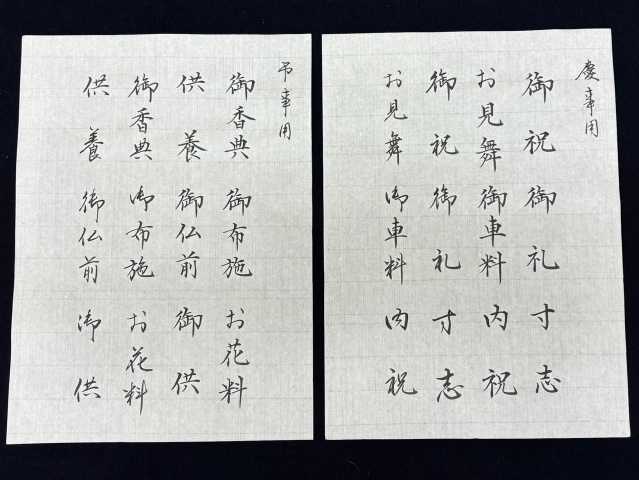 慶事用
御祝 御礼 寸志
お見舞 御車料 内祝
御祝 御礼 寸志
お見舞 御車料 内祝
弔事用
御香典 御布施 お花料
供養 御仏前 御供
御香典 御布施 お花料
供養 御仏前 御供